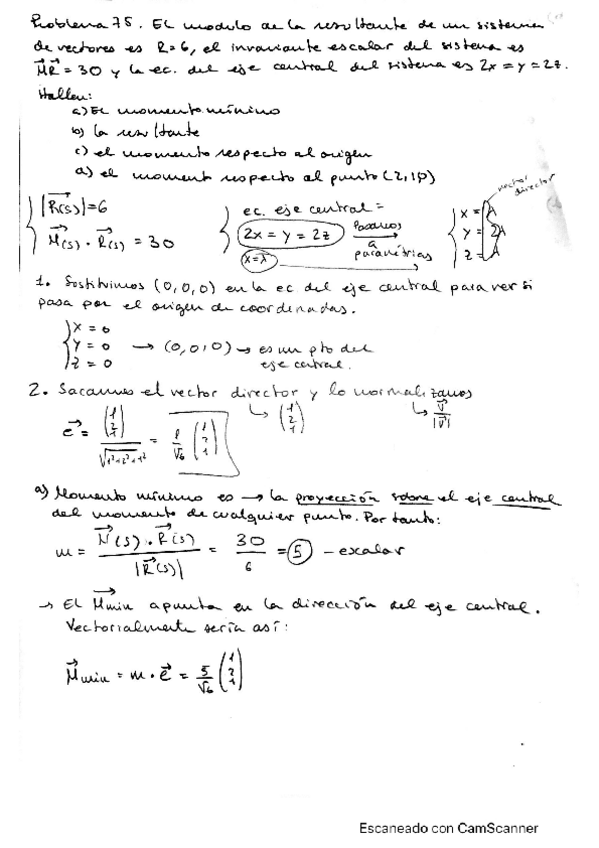 Problema 78. El modulo de la resultante de un sistema
de vectores es R=6, el invariante escalar del sistema es
M⃗R⃗ = 30 y la ec. del eje central del sistema es 2x = y = 2z.
Hallen:
a) El momento mínimo
b) la resultante
c) el momento respecto al origen
d) el moment respecto al punto (2,1,
|R⃗(s)| = 6
M⃗(s) · R⃗(s) = 30
ec. eje central =
2x = y = 2z
x = λ
Pasamos
a
paramétrias
x = λ
y = 2λ
z = λ
vector
director
1. Sostituimos (0,0,0) en la ec del eje central para ver si
pasa por el origen de coordenadas.
x = 0
y = 0
z = 0
→ (0,0,0) → es un pto del
eje central.
2. Sacamos el vector director y lo normalizamos
(1 2 1)
v⃗/|v⃗|
e⃗ = (1 2 1)/√(1²+2²+1²) = 1/√6 (1 2 1)
a) Momento mínimo es → la proyección sobre el eje central
del momento de cualquier punto. Por tanto:
m = M⃗(s) · R⃗(s) / |R⃗(s)| = 30/6 = 5 - escalar
→ El M⃗min apunta en la dirección del eje central.
Vectorialmente sería así:
M⃗min = m · e⃗ = 5/√6 (1 2 1)
Escaneado con CamScanner